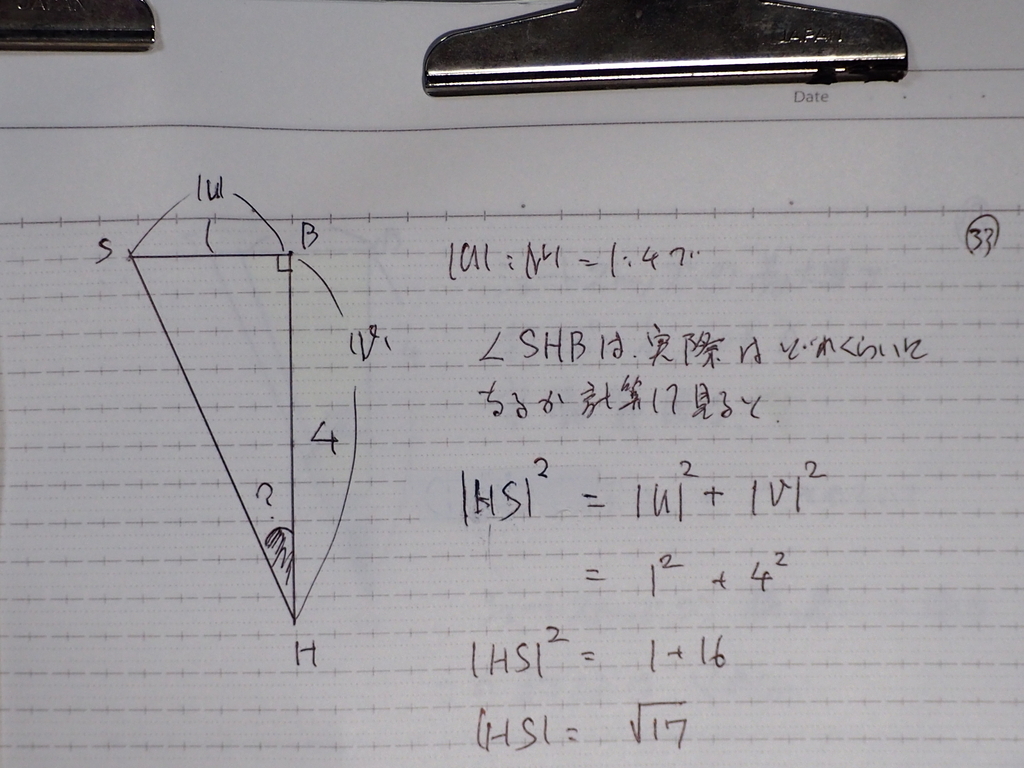 JAPAN
JAPAN
Date
33
|u|
1
S
B
|v|
4
?
H
|u| : |v| = 1:4 で
∠SHBは、実際はどれくらいに
なるか計算して見ると、
|HS|² = |u|² + |v|²
= 1² + 4²
|HS|² = 1 + 16
|HS| = √17